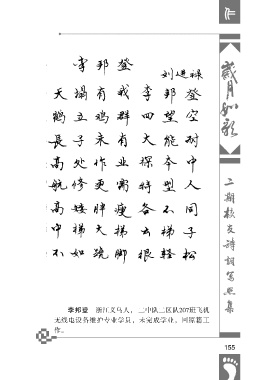 李邦登
刘进禄
天塌有我李邦登
鹤立鸡群四望空
長子来有大能耐
高处作业探 中
航修更需特型人
高矮胖瘦各不同
中梯大梯云梯子
不如跷脚很轻松
李邦登 浙江义乌人，二中队二区队207班飞机
无线电设备维护专业学员，未完成学业，回原籍工
作。
歲月如歌
二期校友诗詞写照集
155